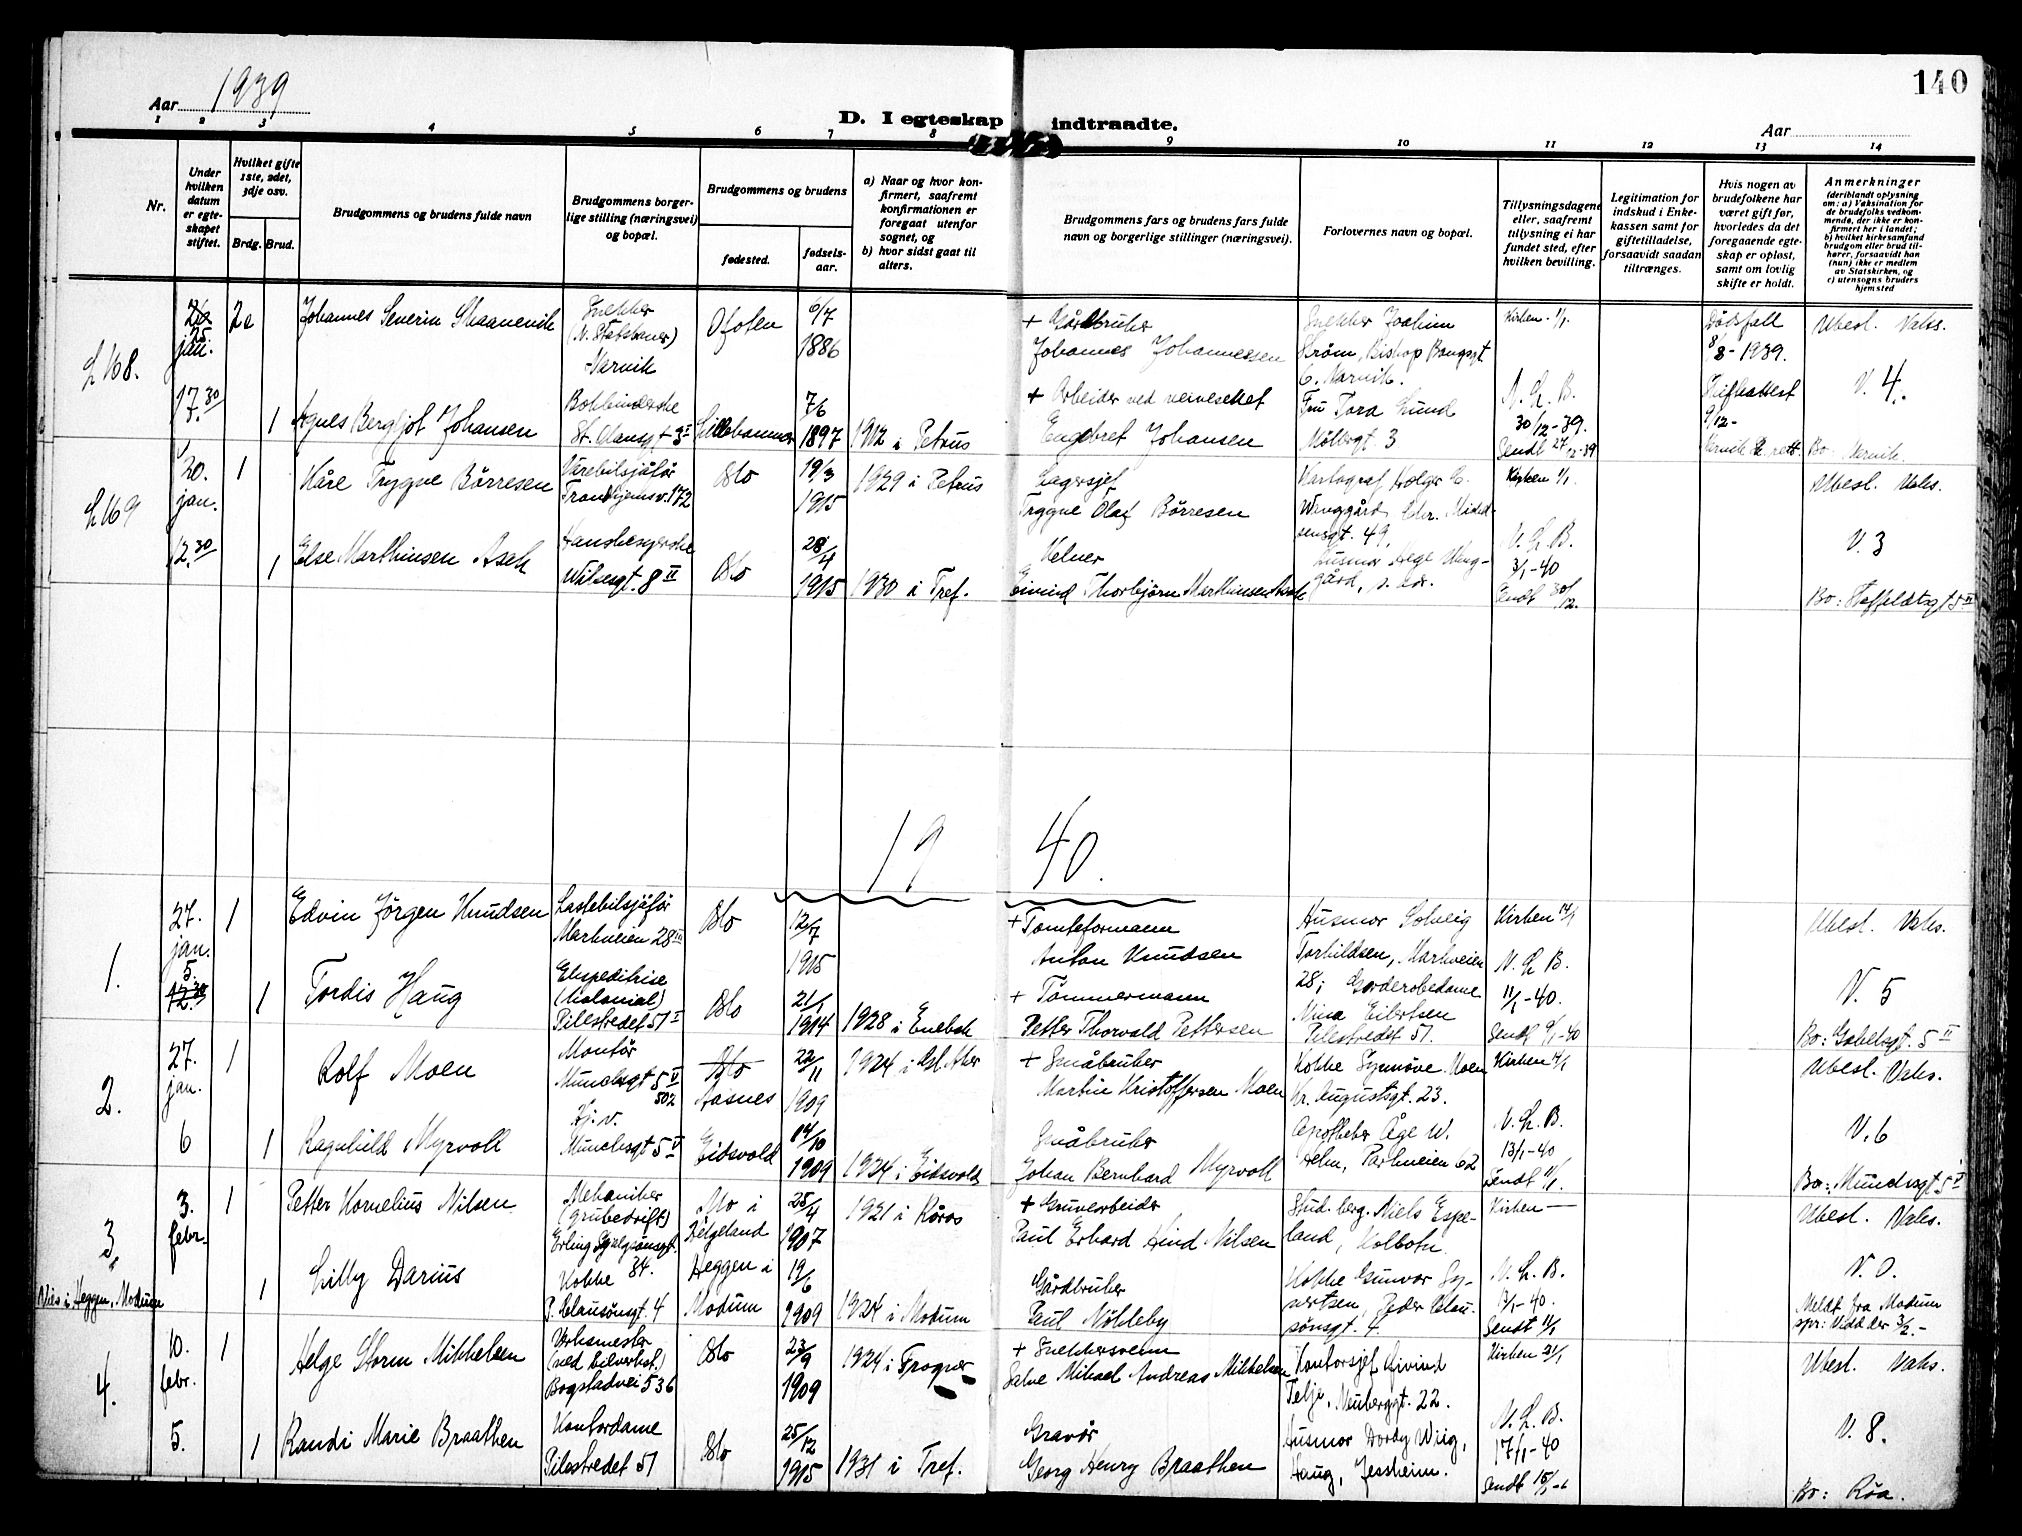 140
Aar 1939
D. I egteskap indtraadte.
Aar
1 2 3 4 5 6 7 8 9 10 11 12 13 14
Nr.
Under hvilken datum er egteskapet stiftet.
Hvilket gifte 1ste, 2det, 3dje osv.
Brdg. Brud.
Brudgommens og brudens fulde navn
Brudgommens borgerlige stilling (næringsvei) og bopæl.
Brudgommens og brudens
fødested.
fødselsaar.
a) Naar og hvor konfirmert, saafremt konfirmationen er foregaat utenfor sognet, og
b) hvor sidst gaat til alters.
Brudgommens fars og brudens fars fulde navn og borgerlige stillinger (næringsvei).
Forlovernes navn og bopæl.
Tillysningsdagene eller, saafremt tillysning ei har fundet sted, efter hvilken bevilling.
Legitimation for indskud i Enkekassen samt for giftetilladelse, forsaavidt saadan tiltrænges.
Hvis nogen av brudefolkene har været gift før, hvorledes da det foregaaende egteskap er opløst, samt om lovlig skifte er holdt.
Anmerkninger
(deriblandt oplysning om: a) Vaksination for de brudefolks vedkommende, der ikke er konfirmert her i landet; b) hvilket kirkesamfund brudgom eller brud tilhører, forsaavidt han (hun) ikke er medlem av Statskirken, og c) utensogns bruders hjemsted
L 168.
25. jan.
17.30
2
Johannes Severin Skaanevik
Snekker
(N. Statsbaner)
Narvik
Ofoten
6/7
1886
+ Gårdbruker
Johannes Johannessen
Snekker Joachim
Strøm, Bishop Bangsgt
6. Narvik.
Kirken 1/1
Dødsfall
8/8 - 1939.
Ubesl. Vaks.
1
Agnes Bergljot Johansen
Bokbinderske
St. Olavsgt 3 I
Lillehammer
7/6
1897
1912 i Petrus
+ Arbeider ved veivesenet
Engebret Johansen
Fru Tora Lund
Møllergt. 3
N. L. B.
30/12-39.
Sendt 27/12-39
Skifteattest
9/12-
V. 4.
Bo: Narvik.
L 169
30. jan.
12.30
1
Kåre Trygve Børresen
Varebilsjåfør
Trondhjemsv. 172
Oslo
19/3
1915
1929 i Petrus
Lagersjef
Trygve Olaf Børresen
Kartograf Holger C.
Wanggård, Chr. Mickelsensgt. 49.
Kirken 1/1.
Ubesl. Vaks.
1
Else Marthinsen Asak
Hanskesyerske
Wilsesgt. 8 II
Oslo
28/4
1915
1930 i Tref.
Kelner
Eivind Thorbjørn Marthinsen Asak
Husmor Hege Wanggård, s. adr.
N. L. B.
3/1-40
Sendt 30/12.
V. 3
Bo: Staffeldtsgt 5 III
19 40.
1.
27. jan.
5.
12.30
1
Edvin Jørgen Knudsen
Lastebilsjåfør
Markveien 28 III
Oslo
12/7
1915
+ Tomteformann
Anton Knudsen
Husmor Solveig
Torkildsen, Markveien
28;
Kirken 14/1
Ubesl. Vaks.
1
Tordis Haug
Ekspeditrise
(kolonial)
Pilestredet 51 I
Oslo
21/1
1914
1928 i Enebak
+ Tømmermann
Petter Thorvald Pettersen
Garderobedame
Nina Eilertsen
Pilestredet 51.
N. L. B.
11/1-40.
Sendt 9/1-40
V. 5
Bo: Gabelsgt. 5 II
2.
27. jan.
6
1
Rolf Moen
Montør
Munchsgt 5 V
502
Oslo
Aasnes
22/11
1909
1924 i Gl. Aker
+ Småbruker
Martin Kristoffersen Moen
Kokke Synnøve Moen
Kr. Augustsgt. 23.
Kirken 14/1
Ubesl. Vaks.
1
Ragnhild Myrvoll
Hj. v.
Munchsgt 5 V
Eidsvold
14/10
1909
1924 i Eidsvold
Småbruker
Johan Bernhard Myrvoll
Apotheker Åge W.
Helm, Parkveien 62
N. L. B.
13/1-40
Sendt 11/1.
V. 6
Bo: Munchsgt 5 V
3.
Vies i Heggen, Modum
3. febr.
1
Petter Kornelius Nilsen
Mekaniker
(grubedrift)
Erling Skjalgssonsgt.
34.
Mo i
Helgeland
25/4
1907
1921 i Røros
+ Gruvearbeider
Paul Erhard Hind Nilsen
Stud. berg. Niels Espeland, Kolbotn.
Kirken —
Ubesl. Vaks.
1
Lilly Darius
Kokke
P. Clausønsgt. 4
Heggen i
Modum
19/6
1909
1924 i Modum
Gårdbruker
Paul Nøkleby
Kokke Gunvor Syvertsen, Peder Clausønsgt. 4.
N. L. B.
13/1-40.
Sendt 11/1
V. 0.
Meldt fra Modum
spr: Vidd. der 3/2.-
4.
10. febr.
5.
1
Helge Storm Mikkelsen
Verkmester
(ved bilverkst.)
Bogstadvei 53 b
Oslo
23/9
1909
1924 i Frogner
+ Snekkersvenn
Salve Mikael Andreas Mikkelsen
Kontorsjef Eivind
Telje, Neubergsgt. 22.
Kirken 21/1
Ubesl. Vaks.
1
Randi Marie Braathen
Kontordame
Pilestredet 51
Oslo
25/12
1915
1931 i Tref.
Gravør
Georg Henry Braathen
Husmor Dordy Wiig,
Haug, Jessheim.
N. L. B.
17/1-40
Sendt 15/1
V. 8.
Bo: Røa.